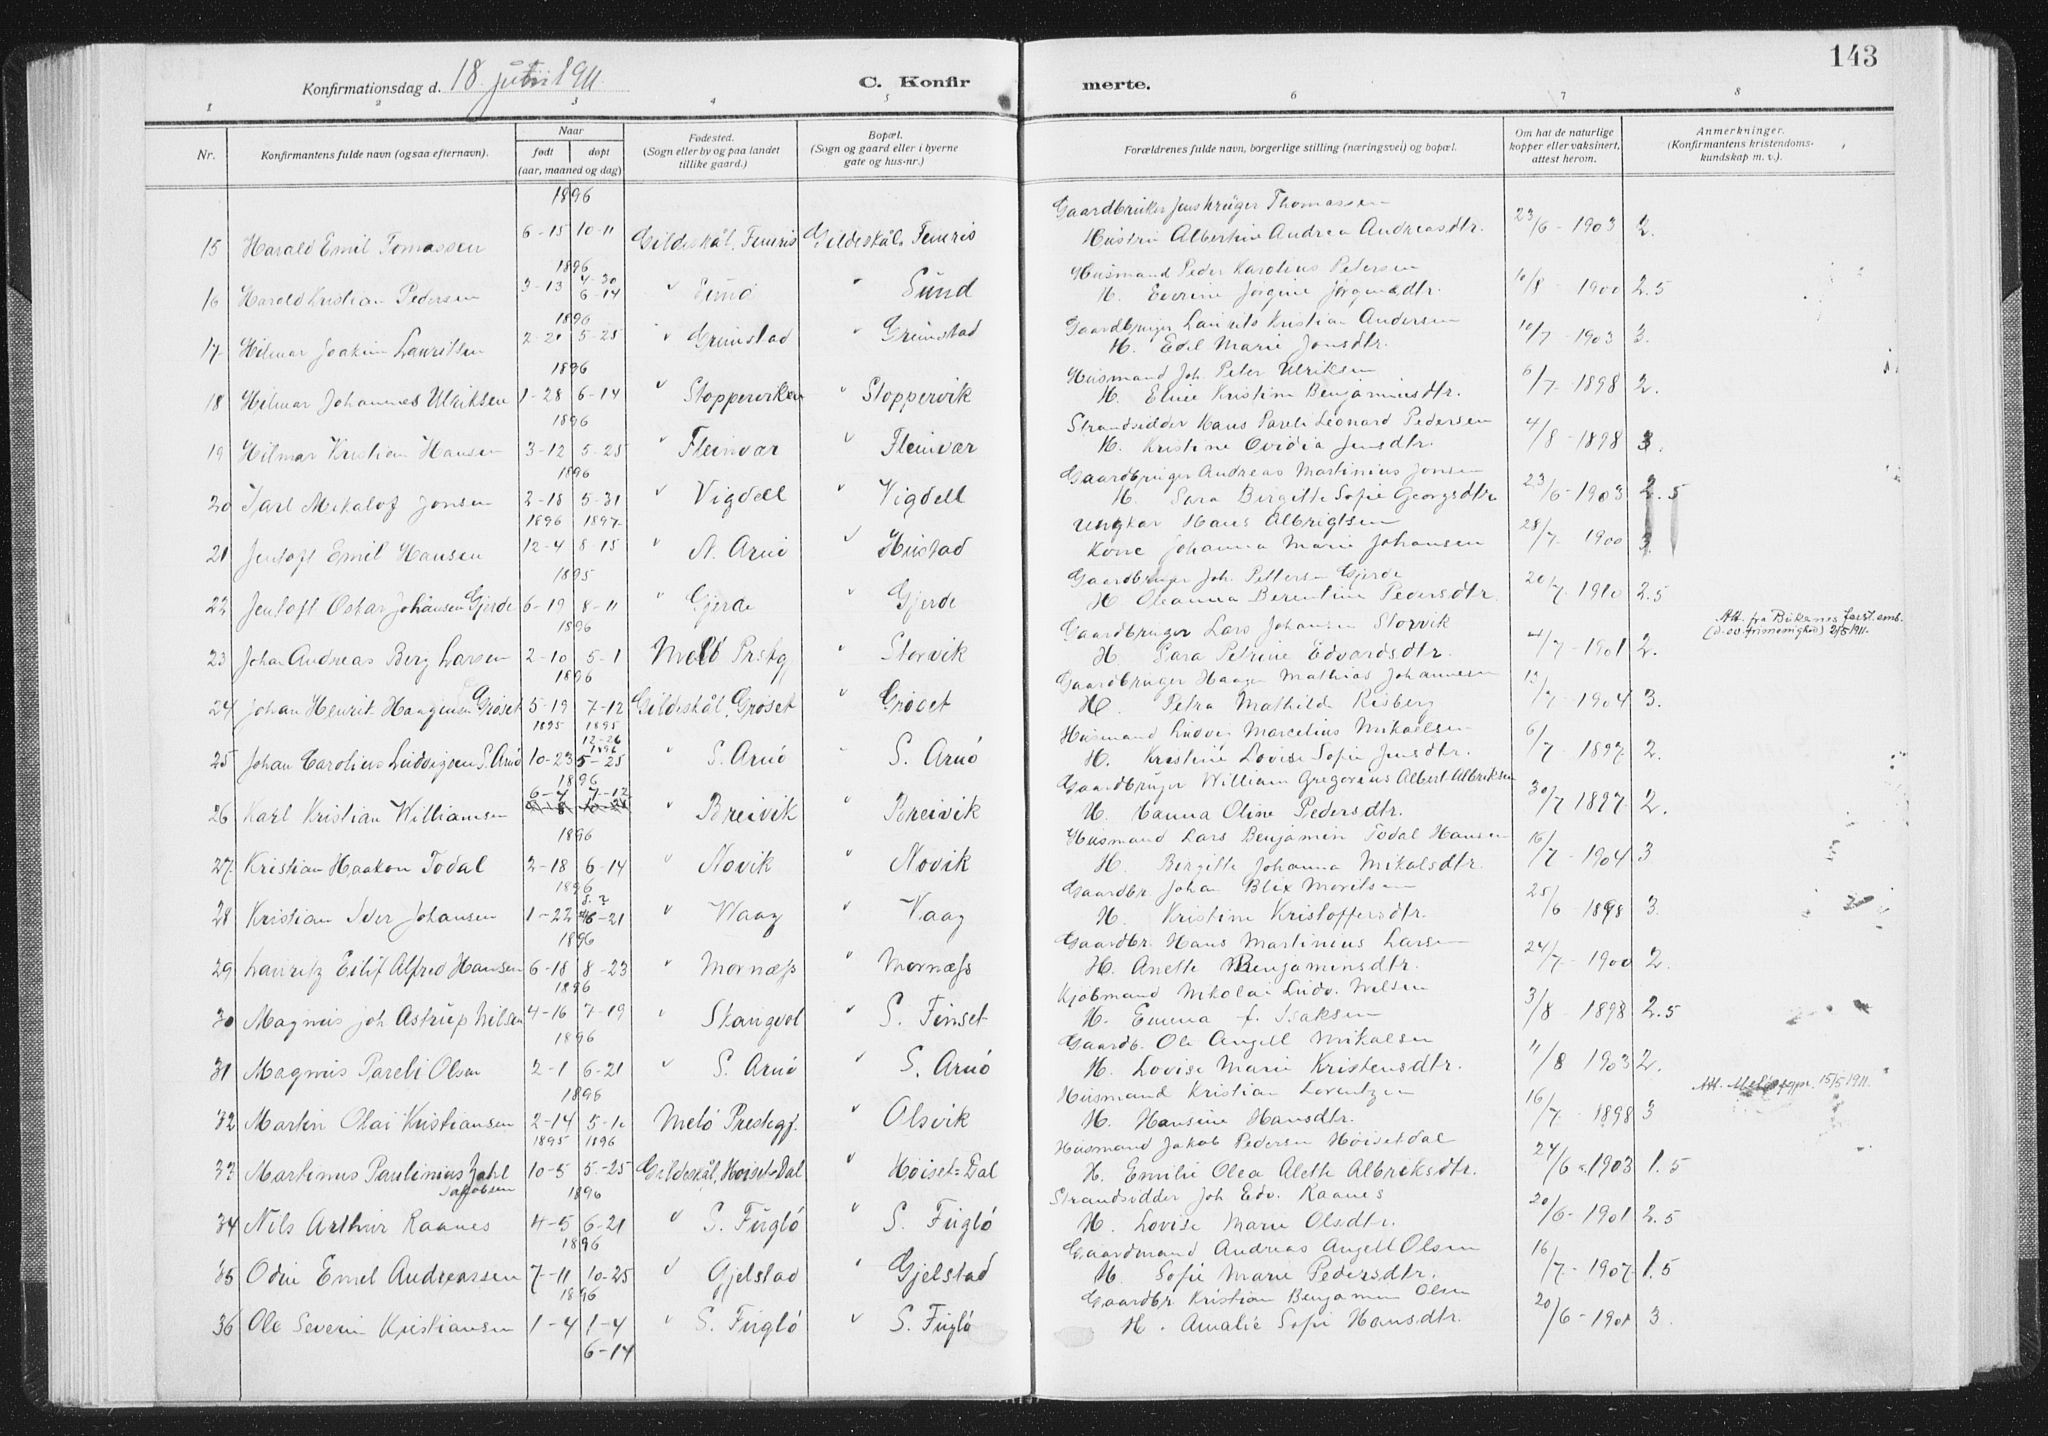 143
Konfirmationsdag d. 18 juni 1911.
C. Konfirmerte.
1 2 3 4 5 6 7 8
Nr.
Konfirmantens fulde navn (ogsaa efternavn).
Naar
født
døpt
(aar, maaned og dag)
Fødested.
(Sogn eller by og paa landet
tillike gaard.)
Bopæl.
(Sogn og gaard eller i byerne
gate og hus-nr.)
Forældrenes fulde navn, borgerlige stilling (næringsvei) og bopæl.
Om hat de naturlige
kopper eller vaksinert,
attest herom.
Anmerkninger.
(Konfirmantens kristendoms-
kundskap m. v.).
1896
Gaardbruker Jens Krüger Thomassen
15 Harald Emil Tomassen 6-15 10-11 Gildeskål, Femris Gildeskål, Femris Hustru Albertine Andrea Andreasdtr. 23/6 - 1903 2.
1896
4-30
Husmand Peder Karolius Petersen
16 Harold Kristian Pedersen 3-13 6-14 " Sund " Sund H. Jørgine Jørgensdtr. 10/8 - 1900 2.5
1896
Gaardbruger Laurits Kristian Andersen
17 Hilmar Joakim Lauritsen 2-21 5-25 " Grimstad " Grimstad H. Edel Marie Jonsdtr. 10/7 - 1903 3.
1896
Husmand Joh. Peter Ulriksen
18 Hilmar Johannes Ulriksen 1-28 6-14 " Stopperviken " Stoppervik H. Kristine Benjaminsdtr. 6/7 - 1898 2.
1896
Strandsidder Hans Pareli Leonard Pedersen
19 Hilmar Kristian Hansen 3-12 5-25 " Fleinvær " Fleinvær H. Kristine Ovidia Jensdtr. 4/8 - 1898 3.
1896
Gaardbruger Andreas Martinius Jonsen
20 Karl Mikalof Jonsen 2-18 5-31 " Vigdell " Vigdell H. Sara Birgitte Sofie Georgsdtr 23/6 - 1903 2.5
1896 1897
Ungkar Hans Albrigtsen
21 Jentoft Emil Hansen 12-4 8-15 " N. Arnö " Hustad Kone Johanna Marie Johansen 28/7 - 1900 3.
1895
Gaardbruger Joh. Pettersen Gjerde
22 Jentoft Oskar Johansen Gjerde 6-19 8-11 " Gjerde " Gjerde H. Oleanna Berentine Pedersdtr. 20/7 - 1910 2.5
1896
Gaardbruger Lars Johansen Storvik
Att. fra Buksnes forst.emb.
(d. ev. frimenighed) 2/5 1911.
23 Johan Andreas Berg Larsen 2-10 5-1 Melö Prstg " Storvik H. Sara Petrine Edvardsdtr. 4/7 - 1901 2.
1896
Gaardbruger Haagen Mathias Johannesen
24 Johan Henrik Haagensen Gröset 5-19 7-12 Gildeskål, Gröset " Gröset H. Petra Mathilde Risberg 13/7 - 1904 3.
1895 1895
12-26
1896
Husmand Ludvig Marcelius Mikaelsen
25 Johan Carolius Ludvigsen S. Arnö 10-23 5-25 " S. Arnö " S. Arnö H. Kristine Lovise Sofie Jensdtr. 6/7 - 1897 2.
1896
Gaardbruger William Gregorius Albert Albriksen
26 Karl Kristian Williamsen 6-7 7-12 " Breivik " Breivik H. Hanna Oline Pedersdtr. 30/7 1897 2.
1896
Husmand Lars Benjamin Todal Hansen
27 Kristian Haakon Todal 2-18 6-14 " Novik " Novik H. Bergitte Johanna Mikalsdtr. 16/7 - 1904 3
1896
Gaardbr. Johan Blix Moritsen
28 Kristian Iver Johansen 1-22 6-21 " Waag " Vaag H. Kristine Kristoffersdtr. 25/6 - 1898 3.
1896
Gaardbr. Hans Martinius Larsen
29 Lauritz Eilif Alfred Hansen 6-18 8-23 " Mornæss " Mornæss H. Anette Benjaminsdtr. 24/7 - 1900 2.
1896
Kjöbmand Nikolai Ludv. Nilsen
30 Magnus Joh Astrup Nilsen 4-16 7-19 " Stangvol " S. Finset H. Emma f. Isaksen 3/8 - 1898 2.5
1896
Gaardb. Ole Angell Mikalsen
31 Magnus Pareli Olsen 2-1 6-21 " S. Arnö " S. Arnö H. Lovise Marie Kristensdtr. 11/8 1903 2.
1896
Husmand Kristian Lorentzen
15/5 1911.
32 Martin Olai Kristiansen 2-14 5-10 Melö Prestegj. " Olsvik H. Hansine Hansdtr. 16/7 - 1898 3
1895 1896
Husmand Jakob Pedersen Höisetdal
33 Martinus Paulinius Zahl Jakobsen 10-5 5-25 Gildeskål, Höiset=Dal " Höiset=Dal H. Emilie Olea Alette Albriksdtr. 24/6 - 1903 1.5
1896
Strandsidder Joh Edv. Raanes
34 Nils Arthur Raanes 4-5 6-21 " S. Fuglö " S. Fuglö H. Lovise Marie Olsdtr. 20/6 - 1901 2.5
1896
Gaardmand Andreas Angell Olsen
35 Odin Emil Andreassen 7-11 10-25 " Gjelstad " Gjelstad H. Sofie Marie Pedersdtr. 16/7 - 1907 1.5
1896
Gaardbr Kristian Benjamin Olsen
36 Ole Severin Kristiansen 1-4 1-4 " S. Fuglö " S. Fuglö H. Amalie Sofie Hansdtr. 20/6 - 1901 3.
6-14